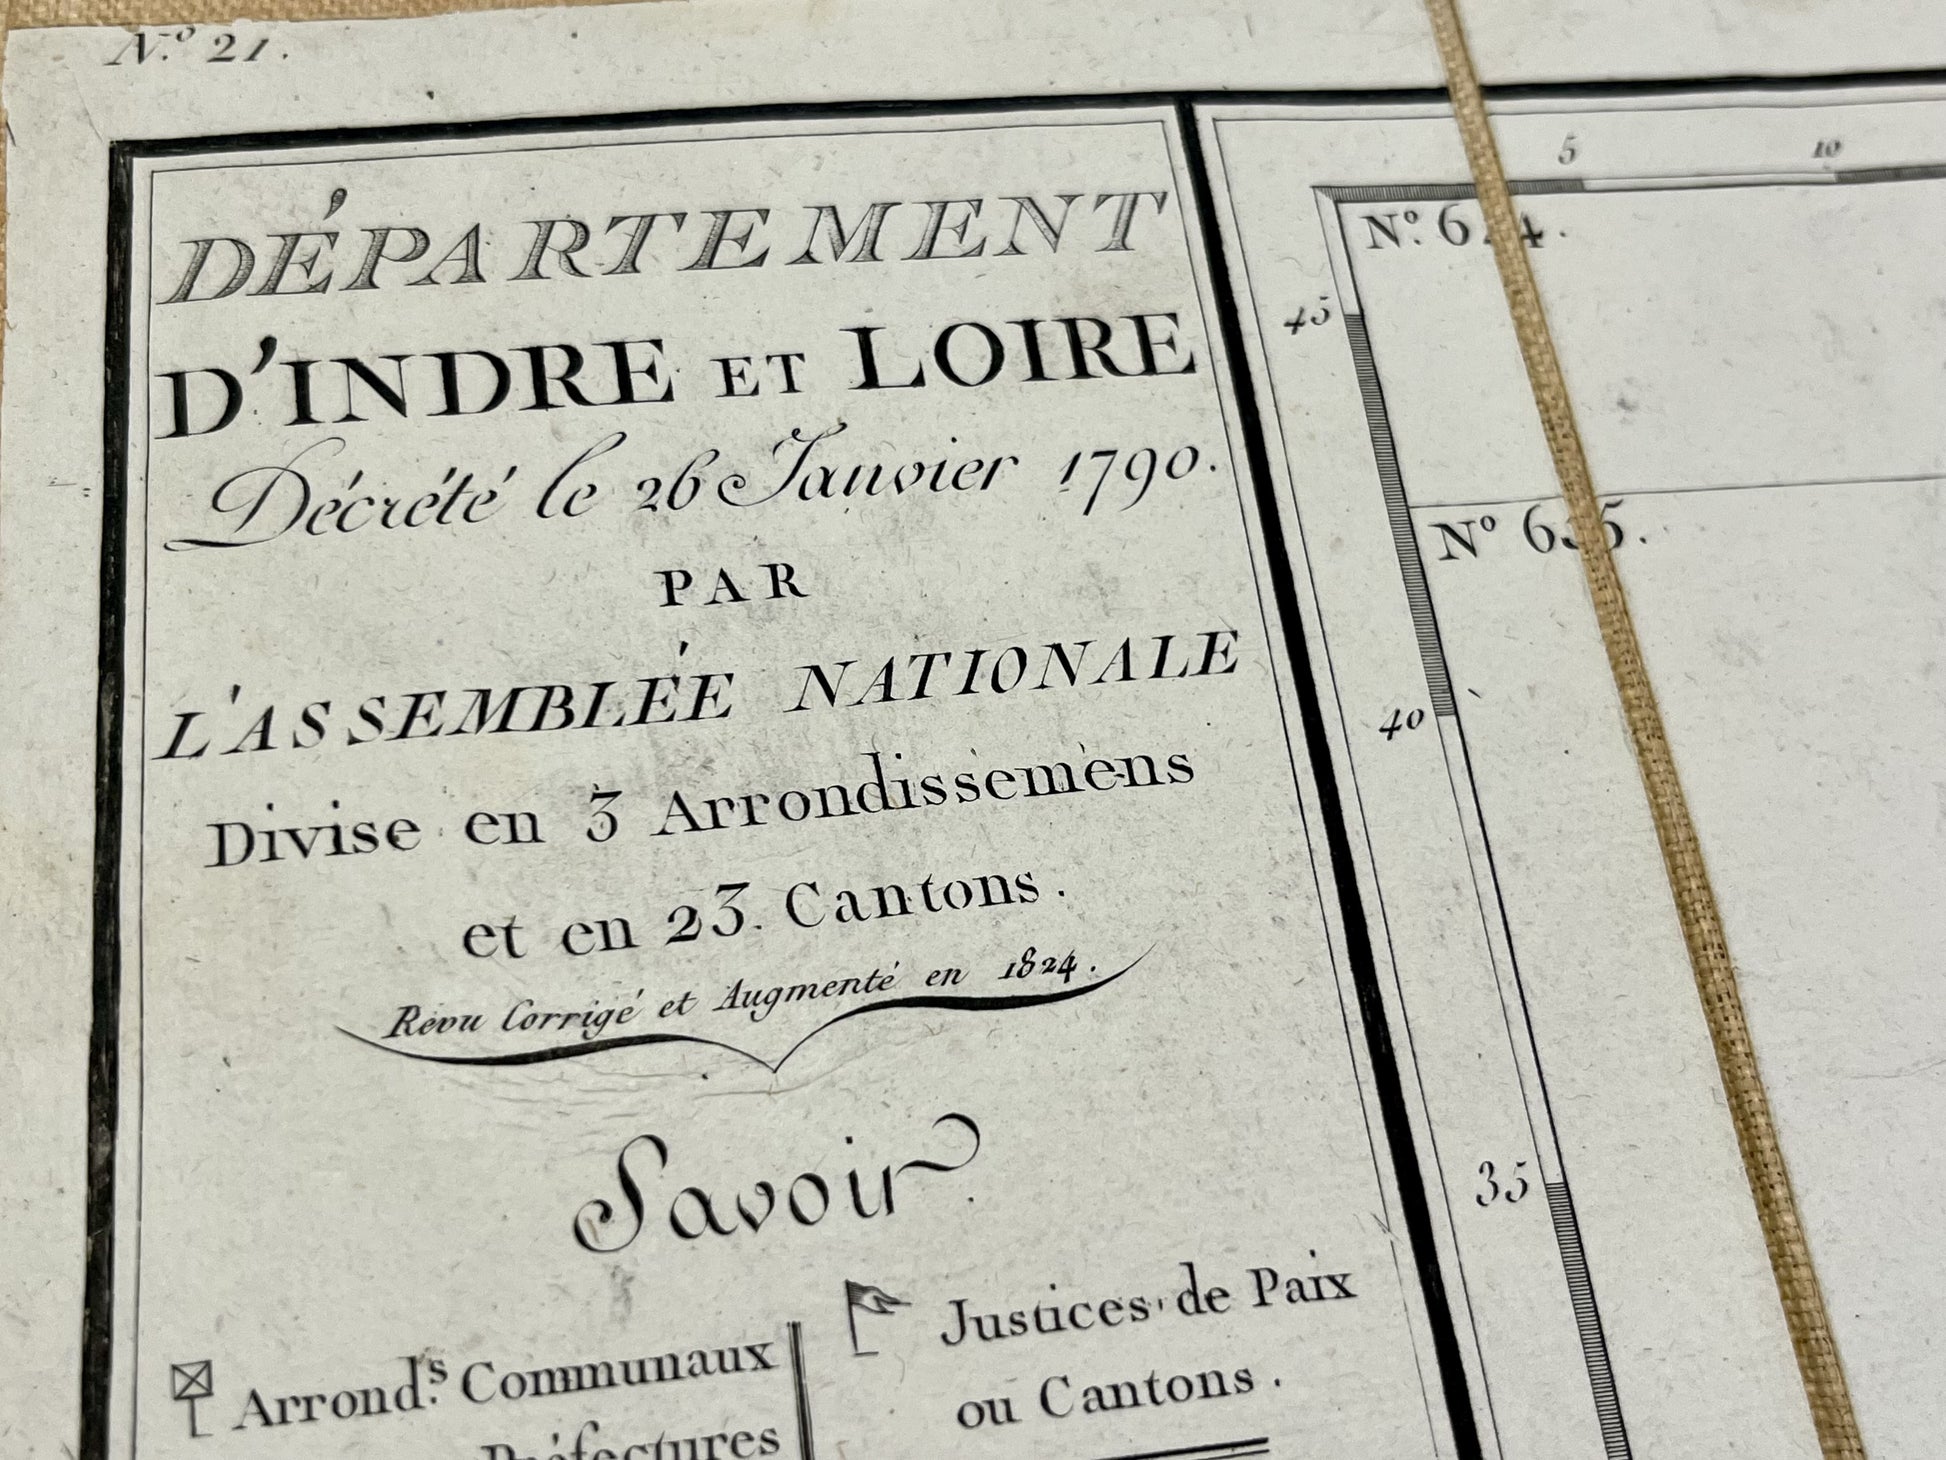 N.o 21.
DÉPARTEMENT
D'INDRE ET LOIRE
Décrété le 26 Janvier 1790.
PAR
L'ASSEMBLÉE NATIONALE
Divise en 3 Arrondissemèns
et en 23. Cantons.
Révu Corrigé et Augmenté en 1824.
Savoir
Arrond.s Communaux
Préfectures
Justices de Paix
ou Cantons.
5 10
N.o
45
No
40
35